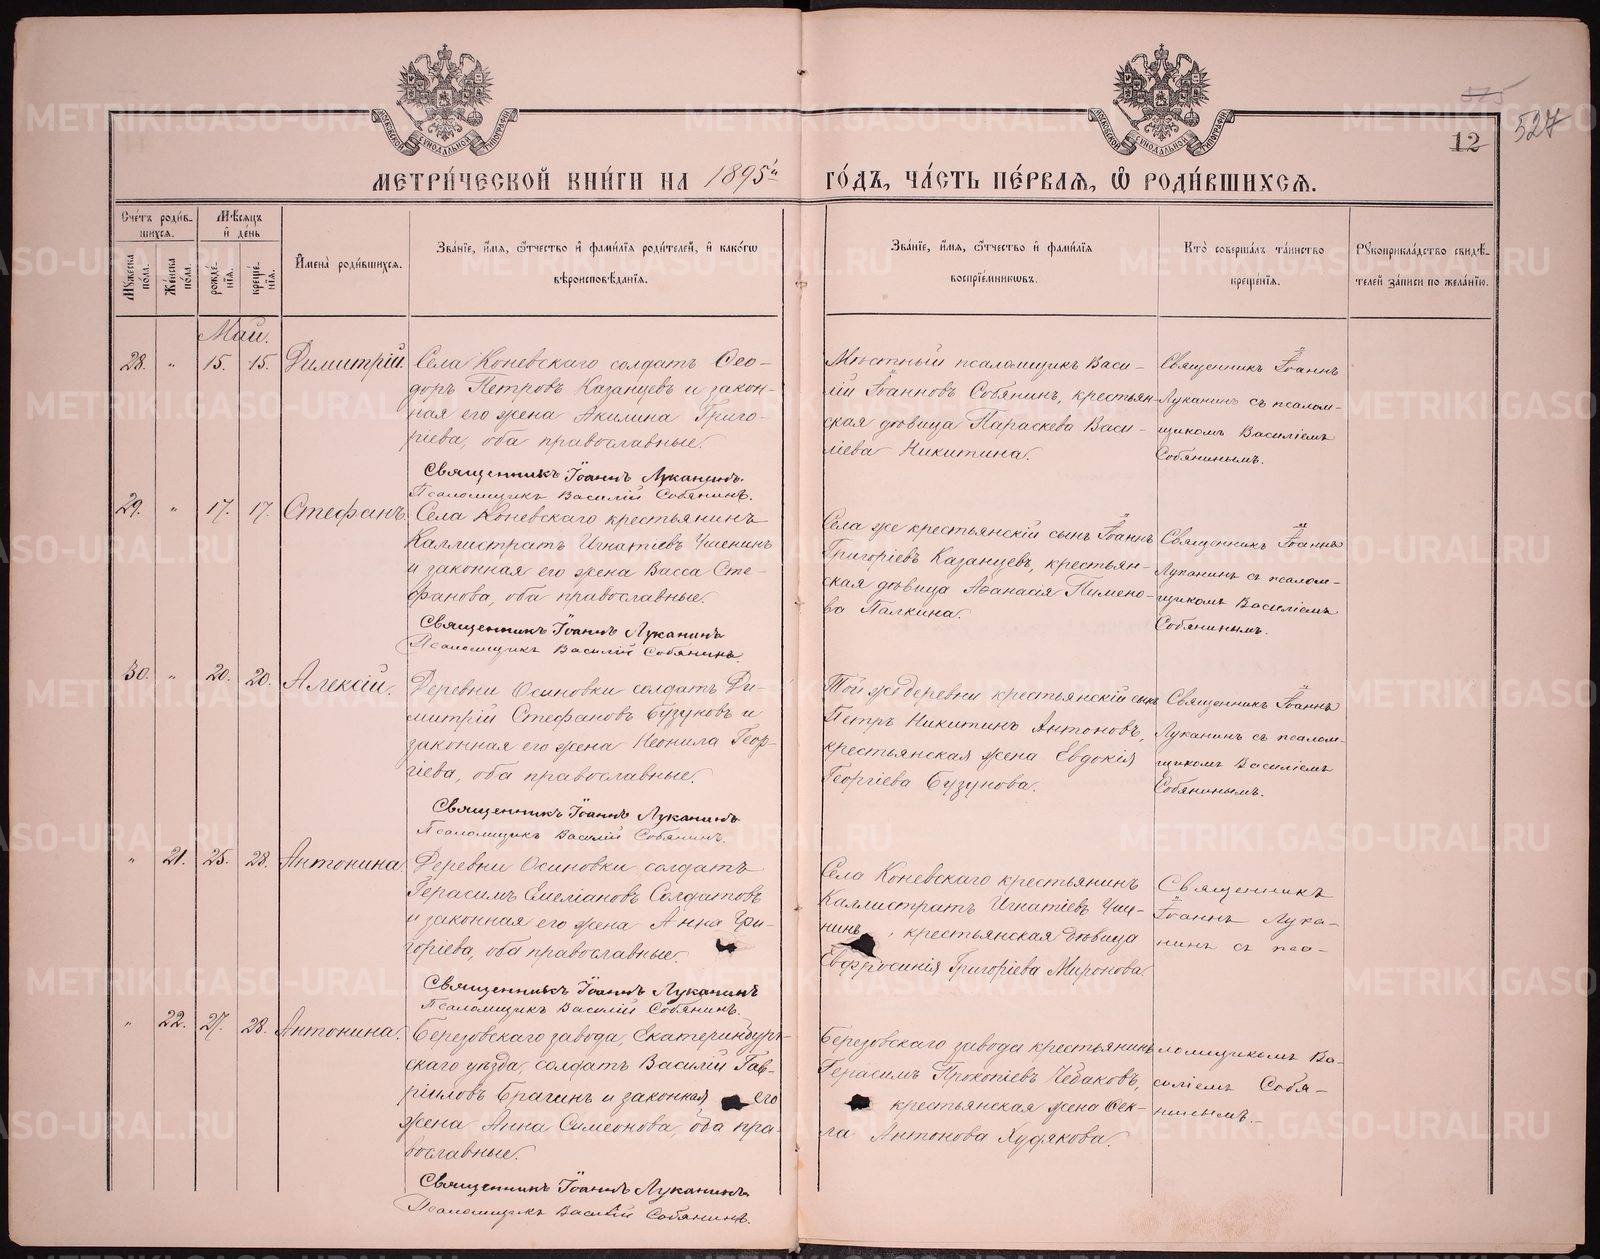 575
12
527
МОСКОВСКОЙ СѴНОДАЛЬНОЙ ТИПОГРАФІИ
МОСКОВСКОЙ СѴНОДАЛЬНОЙ ТИПОГРАФІИ
МЕТРИ́ЧЕСКОЙ КНИ́ГИ НА 1895й ГО́ДЪ, ЧА́СТЬ ПЕ́РВАѦ, Ѽ РОДИ́ВШИХСѦ.
Сче́тъ роди́в-
шихсѧ.
Мѣ́сѧцъ
и҆ де́нь
Мꙋ́жеска пола.
Же́нска по́ла.
рожде́-нїѧ.
креще́-нїѧ.
И҆мена̀ роди́вшихсѧ.
Зва́нїе, и҆́мѧ, ѻ҆́тчество и҆ фами́лїѧ роди́телей, и҆ како́гѡ
вѣроисповѣ́данїѧ.
Зва́нїе, и҆́мѧ, ѻ҆́тчество и҆ фами́лїѧ
воспрїе́мникѡвъ.
Кто̀ соверша́лъ та́инство
креще́нїѧ.
Рꙋкоприкла́дство свидѣ́-
телей за́писи по жела́нїю.
Май.
28. " 15. 15. Димитрій.
Села Коневскаго солдатъ Ѳео-
доръ Петровъ Казанцевъ и закон-
ная его жена Акилина Григо-
ріева, оба православные.
Священникъ Іоаннъ Луканинъ.
Псаломщикъ Василій Собянинъ.
Мѣстный псаломщикъ Васи-
лій Іоанновъ Собянинъ, крестьян-
ская дѣвица Параскева Васи-
ліева Никитина.
Священникъ Іоаннъ
Луканинъ съ псалом-
щикомъ Василіемъ
Собянинымъ.
29. " 17. 17. Стефанъ.
Села Коневскаго крестьянинъ
Каллистратъ Игнатіевъ Чменинъ
и законная его жена Васса Сте-
фанова, оба православные.
Священникъ Іоаннъ Луканинъ
Псаломщикъ Василій Собянинъ.
Села же крестьянскій сынъ Іоаннъ
Григоріевъ Казанцевъ, крестьян-
ская дѣвица Аѳанасія Пимено-
ва Палкина.
Священникъ Іоаннъ
Луканинъ съ псалом-
щикомъ Василіемъ
Собянинымъ.
30. " 20. 20. Алексій.
Деревни Осиновки солдатъ Ди-
митрій Стефановъ Бузуновъ и
законная его жена Неонила Геор-
гіева, оба православные.
Священникъ Іоаннъ Луканинъ
Псаломщикъ Василій Собянинъ.
Той же деревни крестьянскій сынъ
Петръ Никитинъ Антоновъ,
крестьянская жена Евдокія
Георгіева Бузунова.
Священникъ Іоаннъ
Луканинъ съ псалом-
щикомъ Василіемъ
Собянинымъ.
" 21. 25. 28. Антонина.
Деревни Осиновки солдатъ
Герасимъ Емеліановъ Солдатовъ
и законная его жена Анна Гри-
горіева, оба православные.
Священникъ Іоаннъ Луканинъ
Псаломщикъ Василій Собянинъ.
Села Коневскаго крестьянинъ
Каллистратъ Игнатіевъ Чме-
нинъ, крестьянская дѣвица
Евфросинія Григоріева Миронова
Священникъ
Іоаннъ Лука-
нинъ съ пса-
" 22. 27. 28. Антонина.
Березовскаго завода, Екатеринбург-
скаго уѣзда, солдатъ Василій Гав-
ріиловъ Брагинъ и законная его
жена Анна Симеонова, оба пра-
вославные.
Священникъ Іоаннъ Луканинъ.
Псаломщикъ Василій Собянинъ.
Березовскаго завода крестьянинъ
Герасимъ Прокопіевъ Чебаковъ,
крестьянская жена Ѳек-
ла Антонова Худякова.
ломщикомъ Ва-
силіемъ Собя-
нинымъ.
METRIKI.GASO-URAL.RU